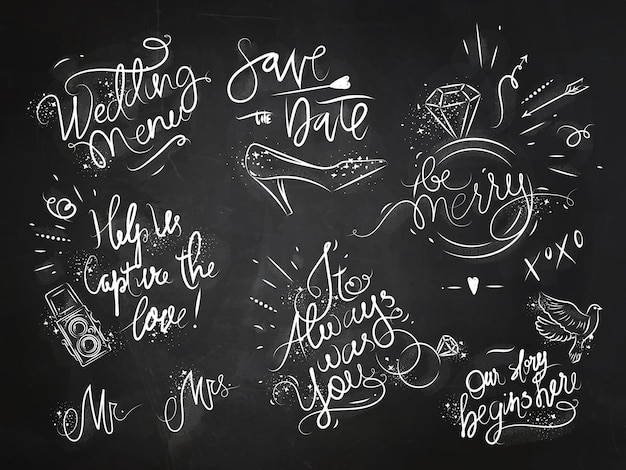 Wedding
Menu
Save
the Date
be
merry
XOXO
Help us
Capture the
love!
It
Always
was
You
Mr.
Mrs.
Our story
begins here